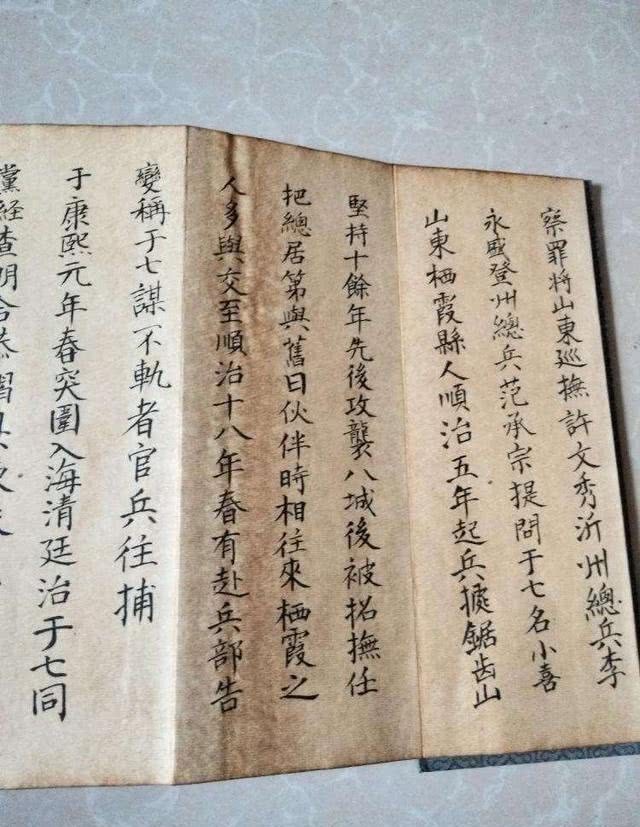 察罪将山東巡撫許文秀沂州總兵李
永盛登州總兵范承宗提問于七名小喜
山東栖霞縣人順治五年起兵據鋸齿山
堅持十餘年先後攻襲八城後被招撫任
把總居第與舊日伙伴時相往來栖霞之
人多與交至順治十八年春有赴兵部告
變稱于七謀不軌者官兵往捕
于康熙元年春突圍入海清廷治于七同
黨经查明合